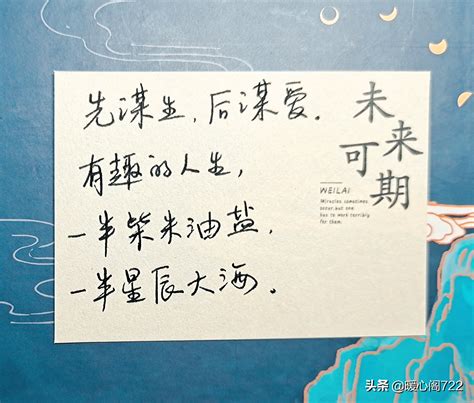 先谋生，后谋爱.
有趣的人生，
一半柴米油盐，
一半星辰大海。
未来
可期
WEILAI
Miracles sometimes
occur, but one
has to work terribly
for them.
头条 @暖心阁722